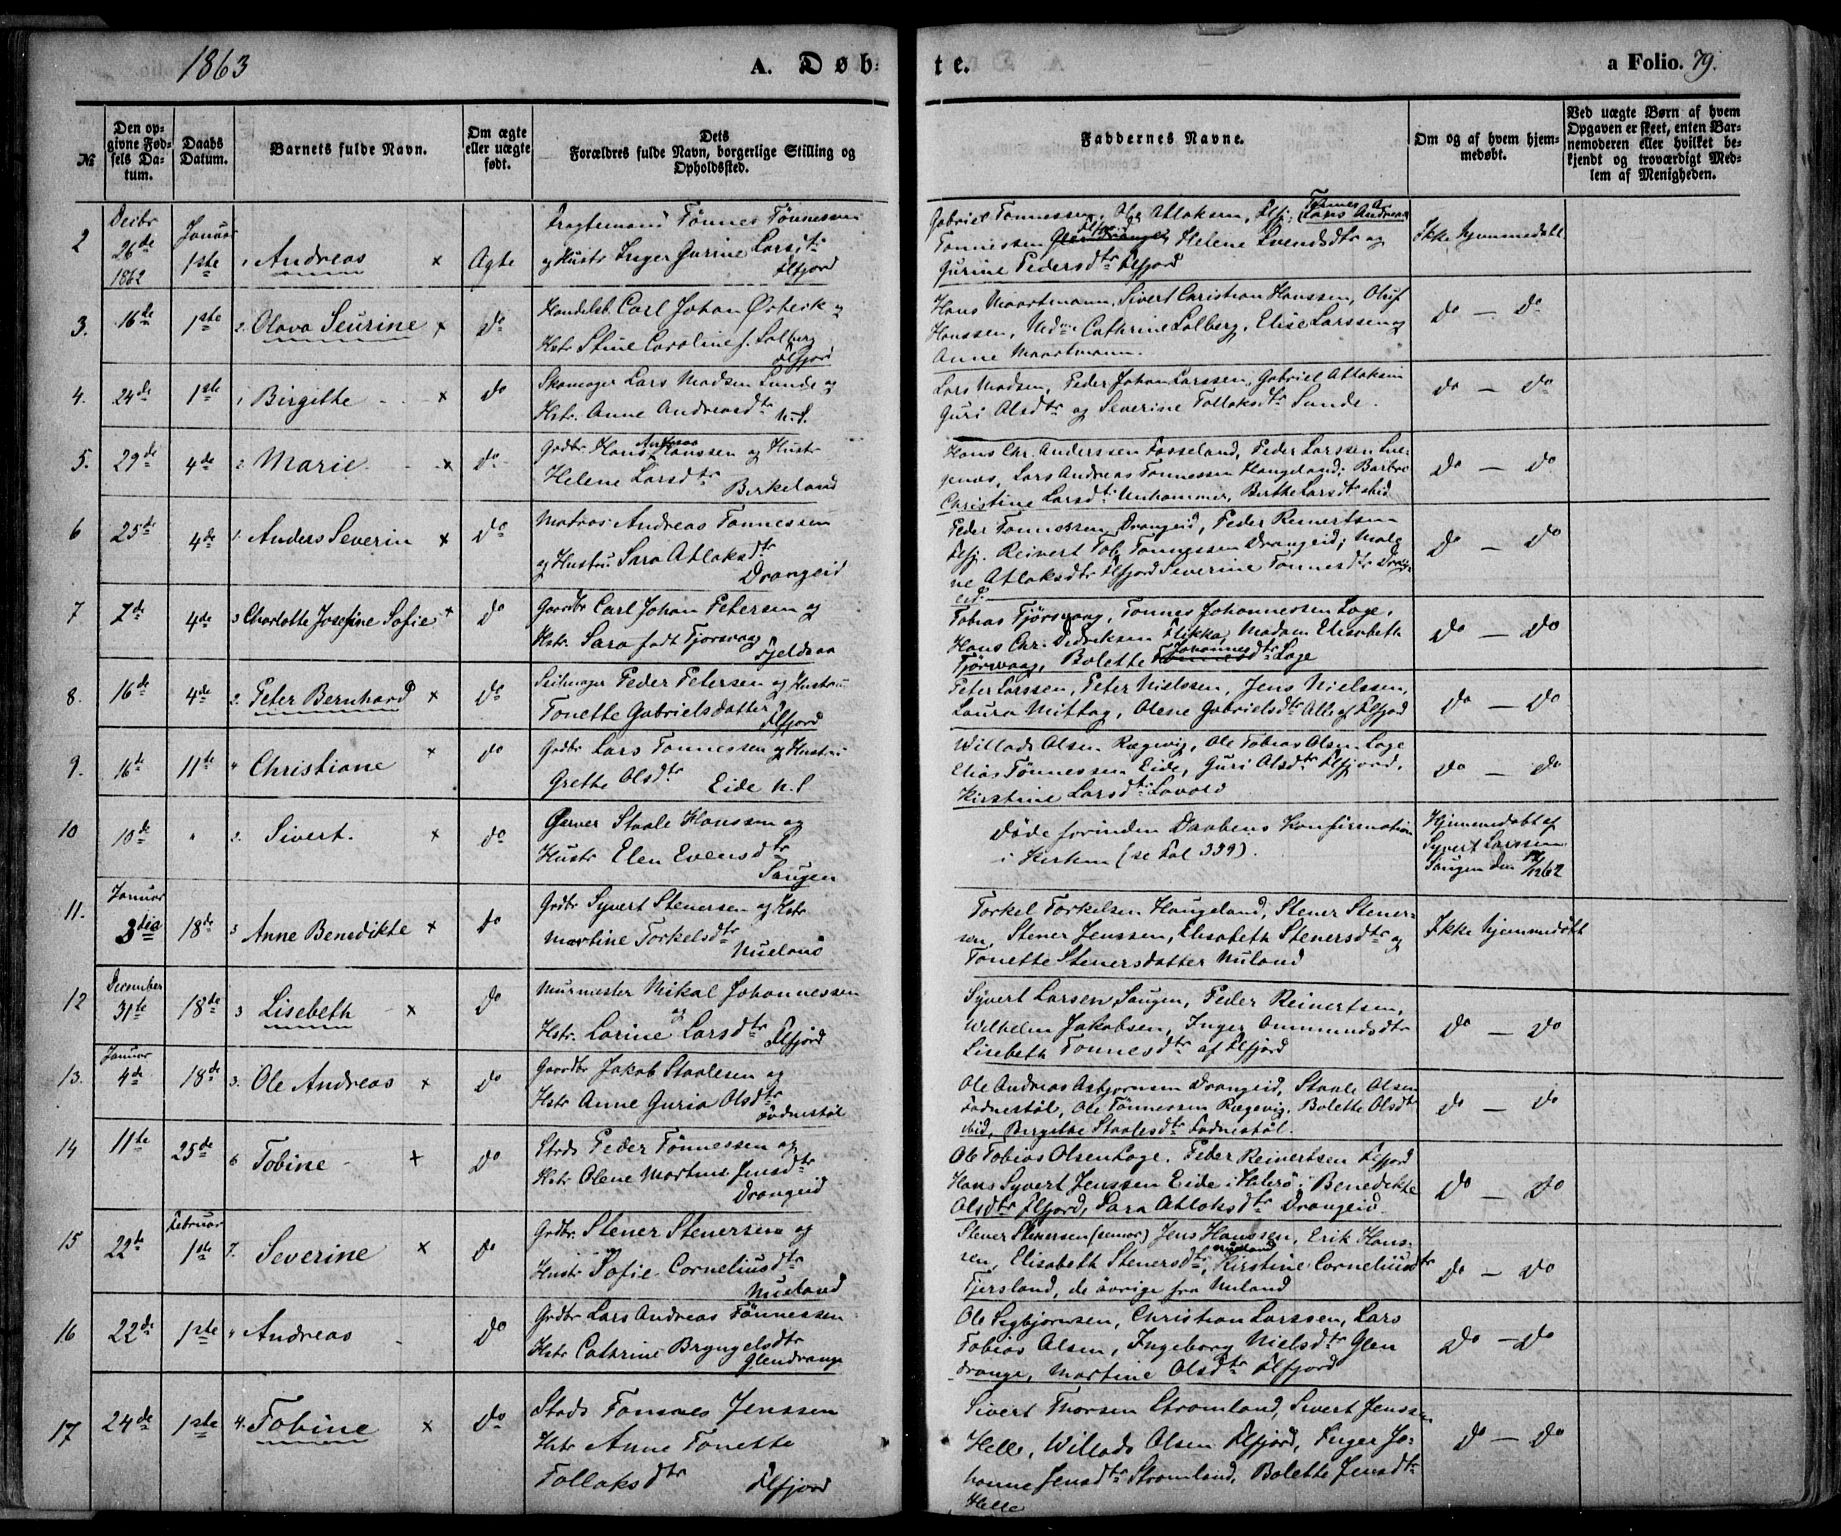 1863
A. Døb-
te.
a Folio. 79.
№
Den op-
givne Fød-
sels Da-
tum.
Daabs
Datum.
Barnets fulde Navn.
Om ægte
eller uægte
født.
Dets
Forældres fulde Navn, borgerlige Stilling og
Opholdssted.
Faddernes Navne.
Om og af hvem hjem-
medøbt.
Ved uægte Børn af hvem
Opgaven er skeet, enten Bar-
nemoderen eller hvilket be-
kjendt og troværdigt Med-
lem af Menigheden.
2
Decbr
26de
1862
Januar
1ste
1 Andreas x
Ægte
Tønnes Tønnessen
og Hustr Inger Gurine Larsdtr
Flfjord
Gabriel Tønnessen, Ole Atlaksen, Flfj. Tønnes A.
Tønnessen Helene Svendsdtr og
Gurine Pedersdtr Flfjord
Ikke hjemmedøbt
3. 16de 1ste 2. Olava Seurine x do
Handelsb. Carl Johan Ørbeck og
Hstr Stine Caroline f. Salberg
Flfjord
Hans Maartmann, Sivert Christian Hanssen, Oluf
Hanssen, Cathrine Salberg, Elise Larssen og
Anne Maartmann.
do - do
4. 24de 1ste 1 Birgithe x do
Skomager Lars Madsen Sunde og
Hstr. Anne Andreasdtr N.S.
Lars Madsen, Peder Johan Larssen, Gabriel Atlaksen
Guri Olsdtr og Severine Tollaksdtr Sunde.
do - do
5. 29de 4de 2 Marie x do
Gdbr Hans Andreas Hanssen og Hustr
Helene Larsdtr Birkeland
Hans Chr. Anderssen Fosseland, Peder Larssen
Lars Andreas Tønnessen Haugeland, Barbro
Christine Larsdtr Unhammer, Birthe Larsdtr ibid
do - do
6 25de 4de 1. Anders Severin x do
Matros Andreas Tønnessen
og Hustru Sara Atlaksdtr
Drangeid
Peder Tønnessen Drangeid, Peder Reinertsen
Flfj. Reinert Tob. Tønnessen Drangeid, Male
ne Atlaksdtr Flfjord Severine Tønnesdtr Drang-
eid.
do - do
7 7de 4de 3 Charlotte Josefine Sofie x do
Gaardbr Carl Johan Petersen og
Hstr Sara født Tjorsvaag
Fjeldsaa
Tobias Tjørsvaag, Tønnes Johannessen Loge,
Hans Chr. Didriksen Flikka, Madam Elisabeth
Tjørsvaag, Bolette Johannesdtr Loge
do - do
8. 16de 4de 2. Peter Bernhard x do
Seilmager Peder Petersen og Hustru
Tonette Gabrielsdatter Flfjord
Peter Larssen, Peter Nielssen, Jens Nielssen,
Laura Mittag, Olene Gabrielsdtr Alle af Flfjord
do - do
9. 16de 11te 4 Christiane x do
Gdbr Lars Tønnessen og Hustru
Grethe Olsdtr Eide N.S
Willads Olsen Rægevig, Ole Tobias Olsen Loge
Elias Tønnessen Eide, Guri Olsdtr Flfjord,
Kirstine Larsdtr Lavold
do - do
10 10de " 2. Sivert. x do
Garver Staale Hanssen og
Hustr Elen Evensdtr
Saugen
Døde forinden Daabens Konfirmation
i Kirken (se Fol 339).
Hjemmedøbt af
Syvert Larssen
Saugen den
11. Januar
3die 18de 3 Anne Benedikte x do
Grdbr Syvert Stenersen og Hstr
Martine Torkelsdtr
Nuland
Torkel Torkelsen Haugeland, Stener Stener-
sen, Stener Jenssen, Elisabeth Stenersdtr og
Tonette Stenersdatter Nuland
Ikke hjemmedøbt
12 December
31te 18de 3 Lisebeth x do
Murmester Mikal Johannessen
og
Hstr. Larine Larsdtr Flfjord
Syvert Larsen Saugen, Peder Reinertsen,
Wilhelm Jakobsen, Inger Ommundsdtr
Lisebeth Tonnesdtr af Flfjord
do - do
13. Januar
4de 18de 3. Ole Andreas x do
Gaardbr Jakob Staalesen og
Hstr Anne Guria Olsdtr
Fodnestøl
Ole Andreas Asbjørnsen Drangeid, Staale Olsen
Fodnestøl, Ole Tønnessen Rægevig, Bolette Olsdtr
ibid, Bergithe Staalesdtr Fodnestøl.
do - do
14 11te 25de 6 Tobine x do
Strds Peder Tønnessen og
Hstr Olene Martine Jensdtr
Drangeid
Ole Tobias Olsen Loge. Peder Reinertsen Flfjord
Hans Syvert Jenssen Eide i Hiterø, Benedikte
Olsdtr Flfjord, Sara Atlaksdtr Drangeid.
do - do
15 22de Februar
1ste 7. Severine x do
Grdbr. Stener Stenersen og
Hustr Sofie Corneliusdtr
Nuland
Stener Stenersen (senior) Jens Hanssen, Erik Hans-
sen, Elisabeth Stenersdtr Nuland, Kirstine Corneliusdtr
Fjersland, de øvrige fra Nuland
do - do
16 22de 1ste " Andreas do
Grdbr Lars Andreas Tønnessen
Hstr Cathrine Bryngelsdtr
Glendrange
Ole Sigbjørnsen, Christian Larssen, Lars
Tobias Olsen, Ingeborg Nielsdtr Glen
drange, Martine Olsdtr Flfjord
do - do
17 24de 1ste 4. Tobine x do
Strds Tønnes Jenssen
Hstr Anne Tonette
Tollaksdtr Flfjord
Sivert Thorsen Stromland, Sivert Jenssen
Helle, Willads Olsen Flfjord, Inger Jo-
hanne Jensdtr Stromland, Bolette Jensdtr
Helle
do - do